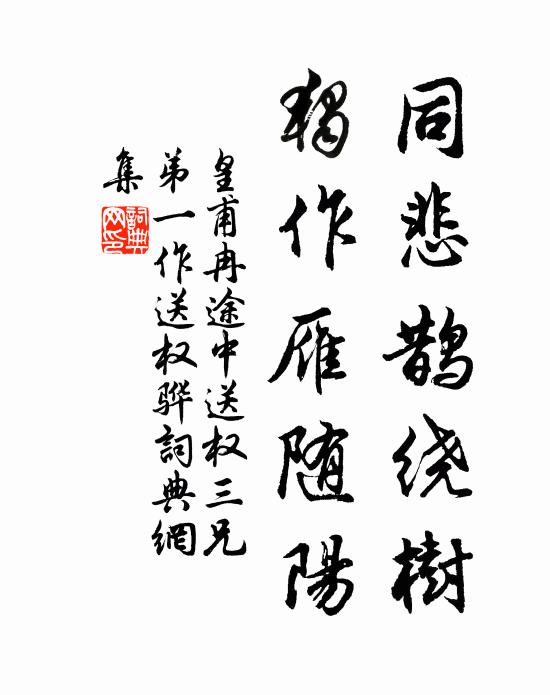 同悲鹊绕樹
独作雁随陽
皇甫冉途中送权三兄
弟一作送权骅詞典網
集
詞典
网印